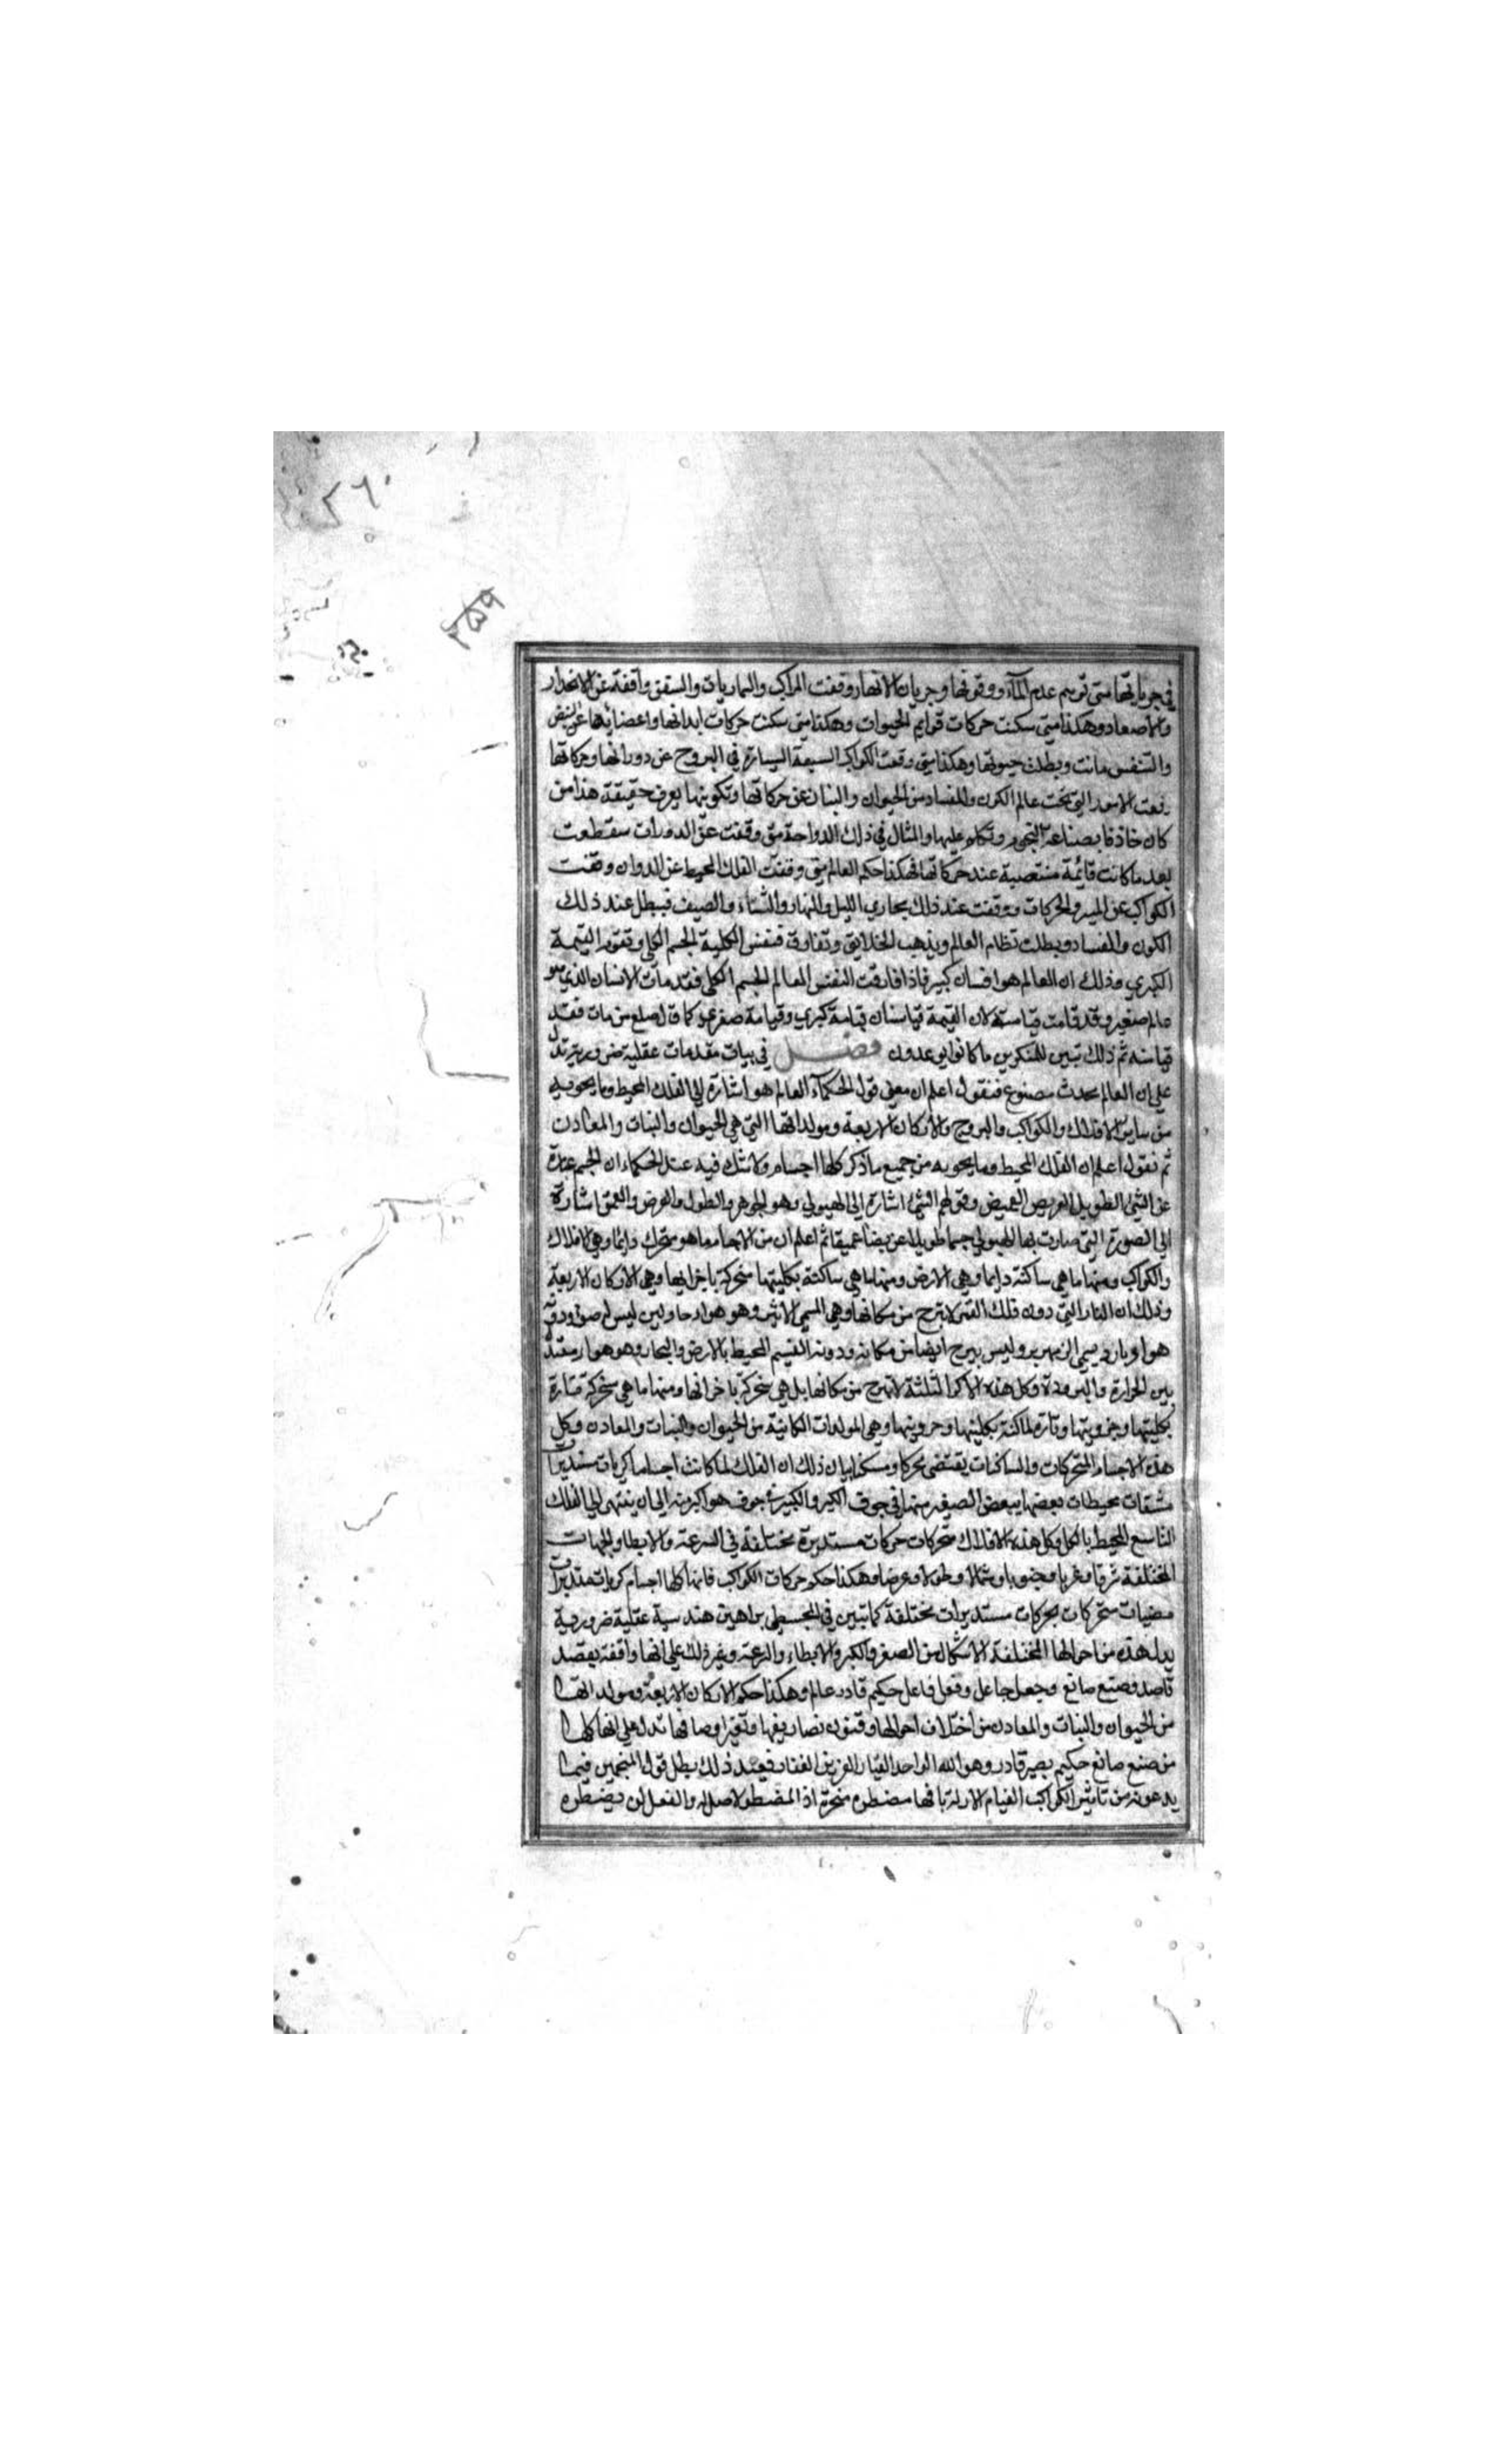 ٢٦٠
٢٥٩
في جريانها متى توهم عدم الماء ووقوفها وجريان الانهار وقفت المراكب والساريات والسفن واقفة عن الانحدار
والاصعاد وهكذا متى سكنت حركات قوايم الحيوان وهكذا متى سكنت حركات ابدانها واعضائها عن النبض
والتنفس ماتت وبطلت حيوتها وهكذا متى وقفت الكواكب السبعة السيارة في البروج عن دورانها وحركاتها
وقفت الامور التي تحت عالم الكون والفساد من الحيوان والنبات عن حركاتها وتكوينها يعرف حقيقة هذا من
كان حاذقا بصناعة النجوم وتكلم عليها والمثال في ذلك الدواحة متى وقفت عن الدوران سقطت
بعد ما كانت قائمة منتصبة عند حركاتها فهكذا حكم العالم متى وقفت الفلك المحيط عن الدوران وقفت
الكواكب عن المسير والحركات ووقفت عند ذلك مجاري الليل والنهار والشتاء والصيف فيبطل عند ذلك
الكون والفساد وبطلت نظام العالم ويذهب الخلايق وتفارق فنفس الكلية الجسم الكلي وتقوم القيمة
الكبرى وذلك ان العالم هو انسان كبير فاذا فارقت النفس العالم الجسم الكلي فقد مات الانسان الذي هو
عالم صغير وقد قامت قيامته لان القيمة قيامتان قيامة كبرى وقيامة صغرى كما قال صلع من مات فقد
قيامته ثم ذلك تبين للمنكرين ما كانوا يوعدون فصل في بيان مقدمات عقلية ضرورية تدل
على ان العالم محدث مصنوع فنقول اعلم ان معنى قول الحكماء العالم هو اشارة الى الفلك المحيط وما يحويه
من ساير الافلاك والكواكب والبروج والاركان الاربعة ومولداتها التي هي الحيوان والنبات والمعادن
ثم نقول اعلم ان الفلك المحيط وما يحويه من جميع ما ذكر كلها اجسام ولا شك فيه عند الحكماء ان الجسم عبارة
عن الشئ الطويل العريض العميض وقولهم الشئ اشارة الى الهيولى وهو الجوهر والطول والعرض والعمق اشارة
الى الصورة التي صارت بها الهيولى جسما طويلا عريضا عميقا ثم اعلم ان من الاجسام ما هو متحرك دايما وهي الافلاك
والكواكب ومنها ما هي ساكنة دايما وهي الارض ومنها ما هي ساكنة بكليتها متحركة باجزائها وهي الاركان الاربعة
وذلك ان النار التي دون فلك القمر لا تبرح من مكانها وهي المسمى الاثير وهو هواء حار ولين ليس له ضوء ودونه
هواء بارد يسمى الزمهرير وليس يبرح ايضا من مكانه ودونه القسيم المحيط بالارض والبحار وهو هواء معتدل
بين الحرارة والبرودة وكل هذه الاكر الثلثة لا تبرح من مكانها بل هي متحركة باجزائها ومنها ما هي متحركة تارة
بكليتها وجزويتها وتارة ساكنة بكليتها وجزويتها وهي المولدات الكائنة من الحيوان والنبات والمعادن وكل
هذه الاجسام المتحركات والساكنات يقتضى محركا ومسكنا بيان ذلك ان الفلك لما كانت اجساما كريات مستديرات
مشفات محيطات بعضها ببعض الصغير منها في جوف الكبير والكبير في جوف هو اكبر منه الى ان ينتهى الى الفلك
التاسع المحيط بالكل وكل هذه الافلاك متحركات حركات مستديرة مختلفة في السرعة والابطاء والجهات
المختلفة شرقا وغربا وجنوبا وشمالا وطولا وعرضا وهكذا حكم حركات الكواكب فانها كلها اجسام كريات مستديرات
مضيات متحركات بحركات مستديرات مختلفة كما تبين في المجسطى ببراهين هندسية عقلية ضرورية
يدل هذه من احوالها المختلفة الاشكال من الصغر والكبر والابطاء والسرعة وغير ذلك على انها واقفة بقصد
قاصد وصنع صانع وجعل جاعل وفعل فاعل حكيم قادر عالم وهكذا حكم الاركان الاربعة ومولداتها
من الحيوان والنبات والمعادن من اختلاف احوالها وفنون تصاريفها وتغير اوصافها تدل على انها كلها
من صنع صانع حكيم بصير قادر وهو الله الواحد القهار العزيز الغفار فعند ذلك بطل قول المنجمين فيما
يدعونه من تاثير الكواكب بانها مضطره متحركة اذ المضطر لا صل له والفعل لمن يضطره